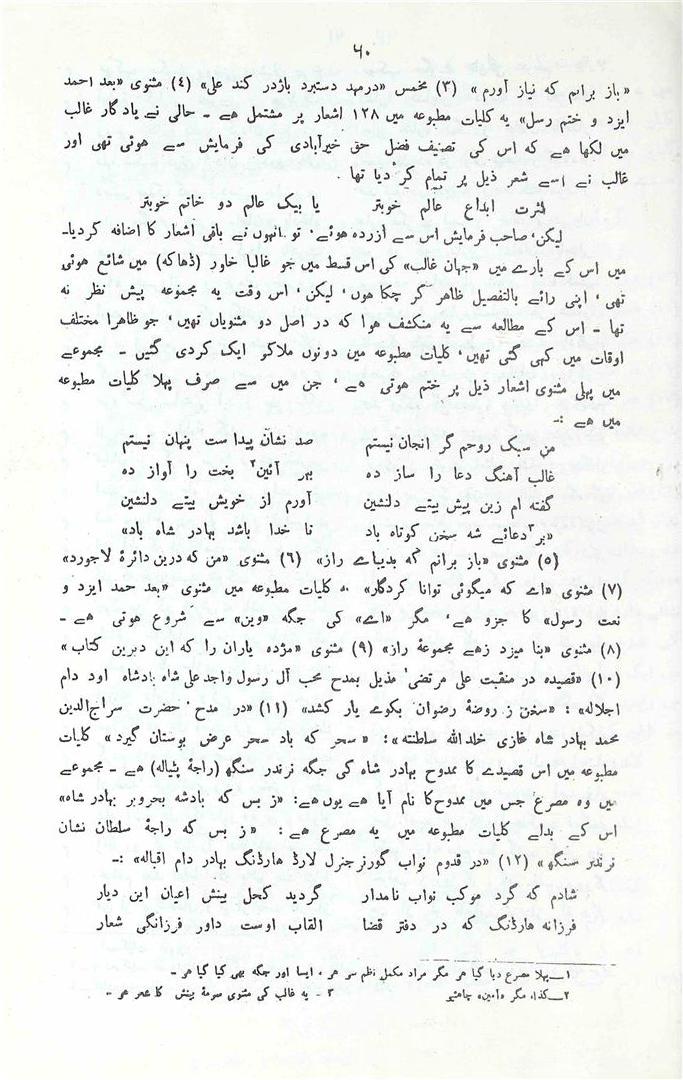 ٦٠
«باز برانم که نیاز آورم» (۳) مخمس «درمهد دستبرد باژدر کند علی» (٤) مثنوی «بعد احمد
ایزد و ختم رسل» یه کلیات مطبوعه میں ۱۲۸ اشعار پر مشتمل ھے ۔ حالی نے یادگار غالب
میں لکھا ھے که اس کی تصنیف فضل حق خیرآبادی کی فرمایش سے ھوئی تھی اور
غالب نے اسے شعر ذیل پر تمام کر دیا تھا ۔
ثرت ابداع عالم خوبتر یا بیک عالم دو خاتم خوبتر
لیکن، صاحب فرمایش اس سے آزردہ ھوئے، تو انہوں نے باقی اشعار کا اضافه کردیا۔
میں اس کے بارے میں «جہان غالب» کی اس قسط میں جو غالبا خاور (ڈھاکه) میں شائع ھوئی
تھی، اپنی رائے بالتفصیل ظاھر کر چکا ھوں، لیکن، اس وقت یه مجموعه پیش نظر نه
تھا ۔ اس کے مطالعه سے یه منکشف ھوا که در اصل دو مثنویاں تھیں، جو ظاھرا مختلف
اوقات میں کہی گئی تھیں، کلیات مطبوعه مین دونوں ملاکر ایک کردی گئیں ۔ مجموعے
میں پہلی مثنوی اشعار ذیل پر ختم ھوتی ھے، جن میں سے صرف پہلا کلیات مطبوعه
میں ھے :۔
من سبک روحم گر انجان نیستم صد نشان پیدا ست پنہان نیستم
غالب آھنگ دعا را ساز دہ بہر آئین۲ بخت را آواز دہ
گفته ام زین پیش بیتے دلنشین آورم از خویش بیتے دلنشین
«بر۳ دعائے شه سخن کوتاہ باد تا خدا باشد بہادر شاہ باد»
(٥) مثنوی «باز برانم که بدیباے راز» (٦) مثنوی «من که درین دائرۂ لاجورد»
(۷) مثنوی «اے که میگوئی توانا کردگار» یه کلیات مطبوعه میں مثنوی «بعد حمد ایزد و
نعت رسول» کا جزو ھے، مگر «اے» کی جگه «وین» سے شروع ھوتی ھے ۔
(۸) مثنوی «بنا میزد زھے مجموعۂ راز» (۹) مثنوی «مژدہ یاران را که این دیرین کتاب»
(۱۰) «قصیدہ در منقبت علی مرتضی، مذیل بمدح محب آل رسول واجد علی شاہ بادشاہ اود دام
اجلاله» : «سخن ز روضۂ رضوان بکوے یار کشد» (۱۱) «در مدح حضرت سراج‌الدین
محمد بہادر شاہ غازی خلدالله سلطنته»: «سحر که باد سحر عرض بوستان گیرد» کلیات
مطبوعه میں اس قصیدے کا ممدوح بہادر شاہ کی جگه نرندر سنگھ (راجۂ پٹیاله) ھے ۔ مجموعے
میں وہ مصرع جس میں ممدوح کا نام آیا ھے یوں ھے: «ز بس که بادشه بحروبر بہادر شاہ»
اس کے بدلے کلیات مطبوعه میں یه مصرع ھے : «ز بس که راجۂ سلطان نشان
نرندر سنگھ» (۱۲) «در قدوم نواب گورنرجنرل لارڈ ھارڈنگ بہادر دام اقباله» :۔
شادم که گرد موکب نواب نامدار گردید کحل بینش اعیان این دیار
فرزانه ھارڈنگ که در دفتر قضا القاب اوست داور فرزانگی شعار
۱ــپہلا مصرع دیا گیا ھی مگر مراد مکمل نظم سی ھی، ایسا اور جگه بھی کیا گیا ھی ۔
۲ــکذا، مگر «آمین» چاھئیے ۳ ۔ یه غالب کی مثنوی سرمۂ بینش کا شعر ھی ۔